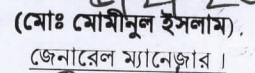 (মোঃ মোমীনুল ইসলাম).
জেনারেল ম্যানেজার।